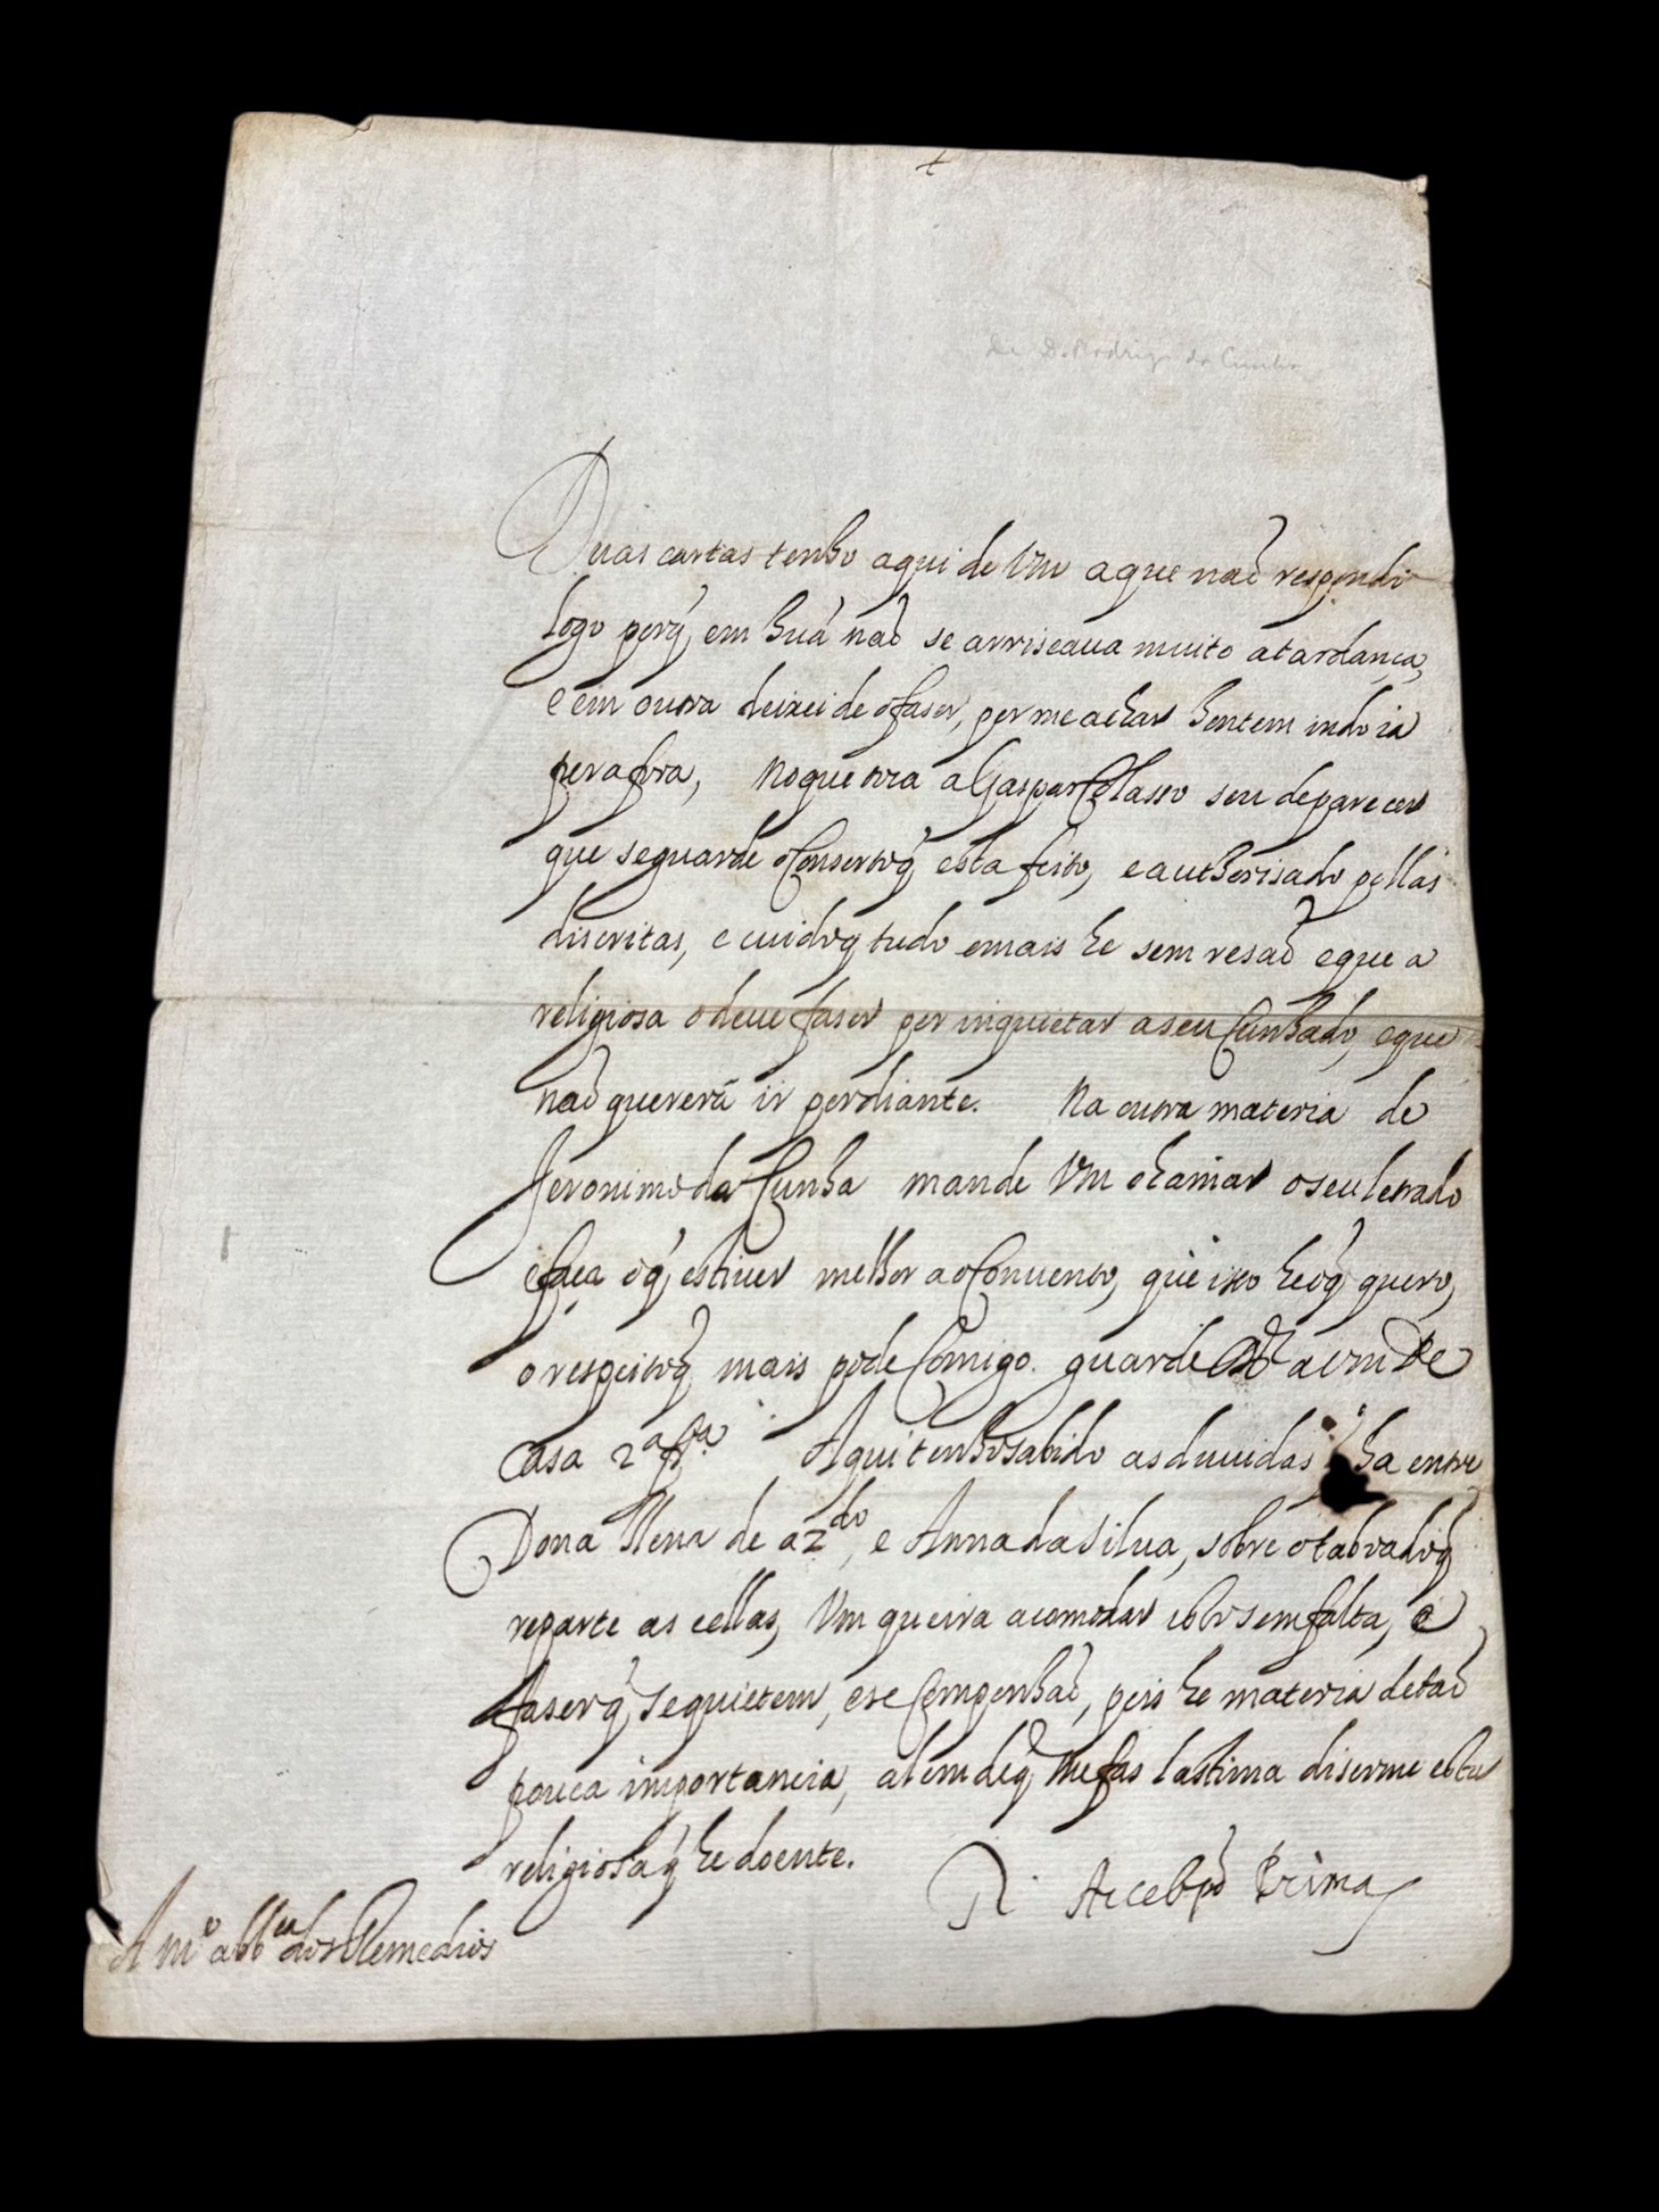 †
De D. Rodrigo da Cunha
Duas cartas tenho aqui de Vm aque naõ respondi
logo porq̃ em huã naõ se arriscaua muito atardança,
e em outra deixei de ofaser, por me achar hontem indo ia
pera fora, Noque toca aGaspar Colasso sou deparecer
que seguarde oConsertoq̃ esta feito, eauthorisado pellas
discritas, e cuidoq̃ tudo omais he sem resaõ eque a
religiosa odeue faser por inquietar aseu Cunhado, eque
naõ quererá ir pordiante. Na outra materia de
Jeronimo da Cunha mande Vm chamar oseu letrado
efaça oq̃ estiuer melhor aoConuento, que isso heoq̃ quero,
o respeitoq̃ mais pode Comigo. guarde Ds a vm De
Casa 2ª fr.ª Aqui tenho sabido as duuidas q̃ ha entre
Dona Ilena de azdo, e Anna da Silua, sobre otaboadoq̃
reparte as cellas, Vm queira acomodar isto semfalta, e
faserq̃ sequietem, ese Componhaõ, pois he materia detaõ
pouca importancia, alemdeq̃ mefas lastima diserme esta
religiosa q̃ he doente.
R. Arcebpõ Primas
A mᵉ abbᵉˢᵃ dos Remedios